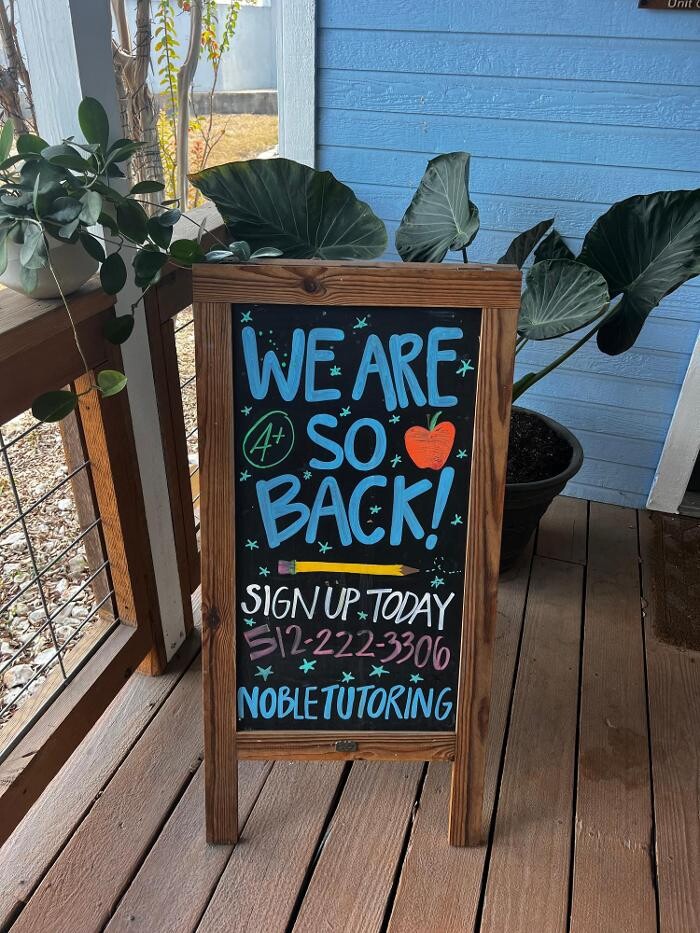 Unit
WE ARE
A+ SO
BACK!
SIGN UP TODAY
512-222-3306
NOBLE TUTORING